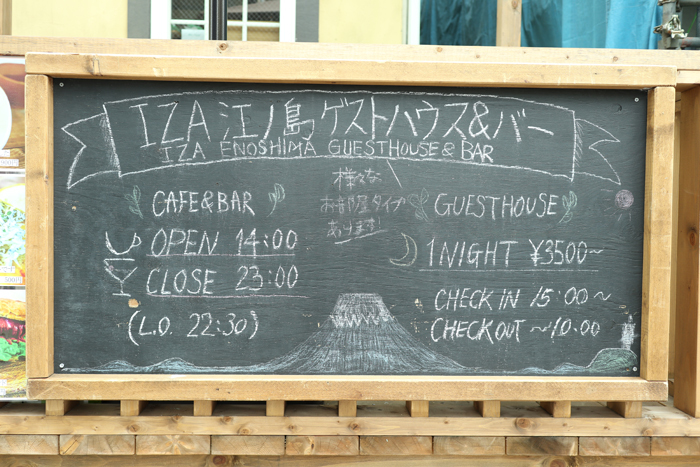 IZA 江ノ島 ゲストハウス&バー
IZA ENOSHIMA GUESTHOUSE & BAR
様々な
お部屋タイプ
あります!
CAFE&BAR
OPEN 14:00
CLOSE 23:00
(L.O. 22:30)
GUESTHOUSE
1NIGHT ¥3500~
CHECK IN 15:00~
CHECKOUT ~10:00